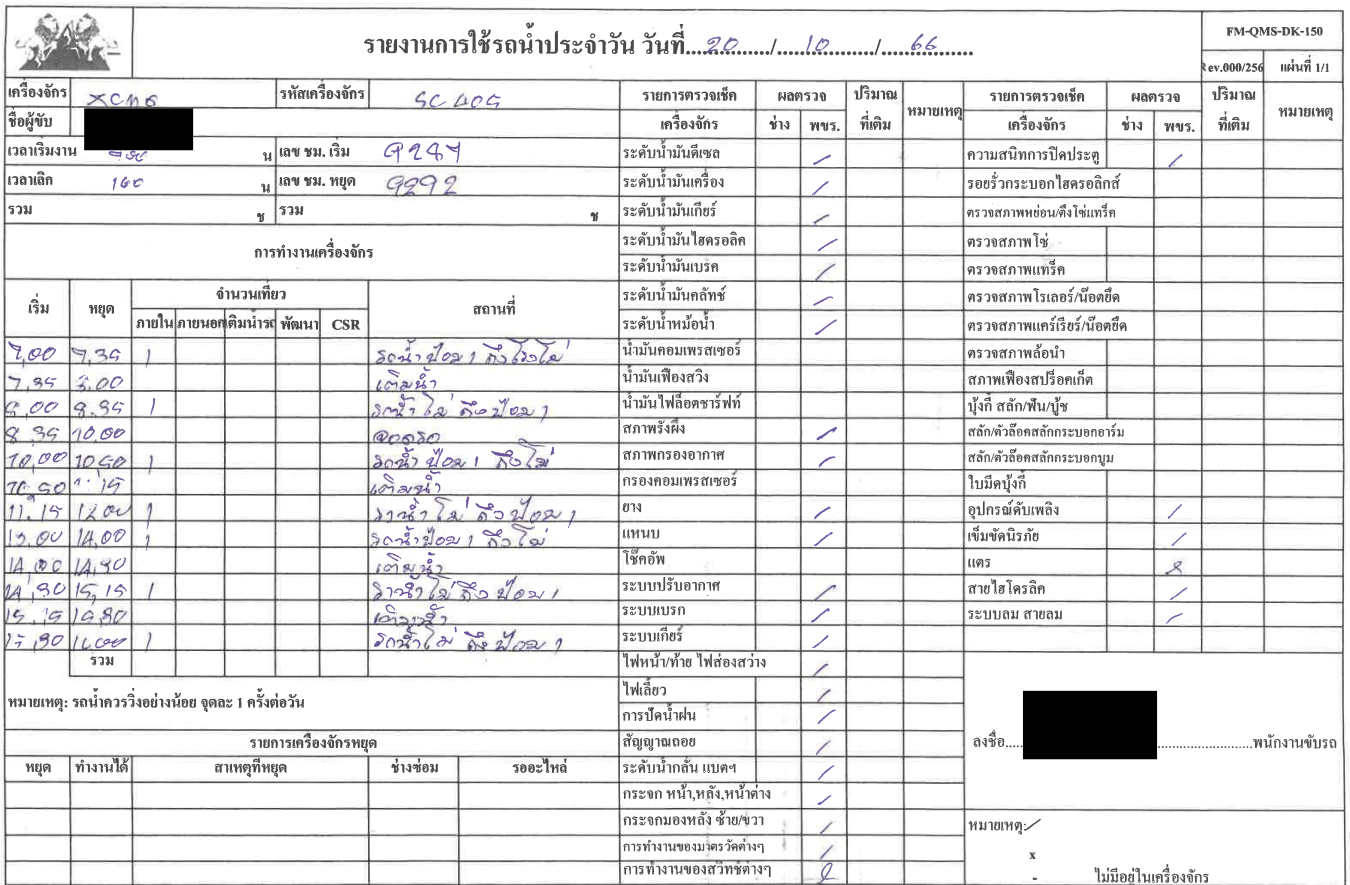 รายงานการใช้รถน้ำประจำวัน วันที่....20......./....10........./....66.......
FM-QMS-DK-150
Rev.000/256 แผ่นที่ 1/1
เครื่องจักร XCMG รหัสเครื่องจักร
ชื่อผู้ขับ
เวลาเริ่มงาน น เลข ชม. เริ่ม 9287
เวลาเลิก น เลข ชม. หยุด 9292
รวม ช รวม ช
การทำงานเครื่องจักร
เริ่ม หยุด จำนวนเที่ยว สถานที่
ภายใน ภายนอก เติมน้ำรถ พัฒนา CSR
7,00 7,35 1 รถน้ำ ป้อม 1 ถึงโรงโม่
7,35 8,00 เติมน้ำ
8,00 8.35 1 รถน้ำ โม่ ถึง ป้อม 1
8,35 10,00 จอดรถ
10,00 1050 1 รถน้ำ ป้อม 1 ถึงโม่
10,50 เติมน้ำ
11.15 12,00 1 โม่ ถึง ป้อม 1
13,00 14,00 1 รถน้ำ ป้อม 1 ถึง โม่
14,00 14,30 เติมน้ำ
14,30 15,15 1 โม่ ถึง ป้อม 1
15,15 15,30 เติมน้ำ
15,30 1 รถน้ำ โม่ ถึง ป้อม 1
รวม
หมายเหตุ: รถน้ำควรวิ่งอย่างน้อย จุดละ 1 ครั้งต่อวัน
รายการเครื่องจักรหยุด
หยุด ทำงานได้ สาเหตุที่หยุด ช่างซ่อม รออะไหล่
รายการตรวจเช็ค ผลตรวจ ปริมาณ หมายเหตุ
เครื่องจักร ช่าง พขร. ที่เติม
ระดับน้ำมันดีเซล /
ระดับน้ำมันเครื่อง /
ระดับน้ำมันเกียร์ /
ระดับน้ำมันไฮดรอลิค /
ระดับน้ำมันเบรค /
ระดับน้ำมันคลัทช์ /
ระดับน้ำหม้อน้ำ /
น้ำมันคอมเพรสเซอร์
น้ำมันเฟืองสวิง
น้ำมันไฟล็อตชาร์ฟท์
สภาพรังผึ้ง /
สภาพกรองอากาศ /
กรองคอมเพรสเซอร์
ยาง /
แหนบ /
โช๊คอัพ
ระบบปรับอากาศ /
ระบบเบรก /
ระบบเกียร์ /
ไฟหน้า/ท้าย ไฟส่องสว่าง /
ไฟเลี้ยว /
การปัดน้ำฝน /
สัญญาณถอย /
ระดับน้ำกลั่น แบตฯ /
กระจก หน้า,หลัง,หน้าต่าง /
กระจกมองหลัง ซ้าย/ขวา /
การทำงานของมาตรวัดต่างๆ /
การทำงานของสวิทช์ต่างๆ
รายการตรวจเช็ค ผลตรวจ ปริมาณ หมายเหตุ
เครื่องจักร ช่าง พขร. ที่เติม
ความสนิทการปิดประตู /
รอยรั่วกระบอกไฮดรอลิกส์
ตรวจสภาพหย่อน/ตึงโซ่แทร็ค
ตรวจสภาพโซ่
ตรวจสภาพแทร็ค
ตรวจสภาพโรเลอร์/น๊อตยึด
ตรวจสภาพแคร์เรียร์/น๊อตยึด
ตรวจสภาพล้อนำ
สภาพเฟืองสปร็อคเก็ต
บุ้งกี๋ สลัก/ฟัน/บู้ช
สลัก/ตัวล๊อคสลักกระบอกอาร์ม
สลัก/ตัวล๊อคสลักกระบอกบูม
ใบมีดบุ้งกี๋
อุปกรณ์ดับเพลิง /
เข็มขัดนิรภัย /
แตร
สายไฮโดรลิค /
ระบบลม สายลม /
ลงชื่อ..... .....................พนักงานขับรถ
หมายเหตุ: /
x
- ไม่มีอยู่ในเครื่องจักร